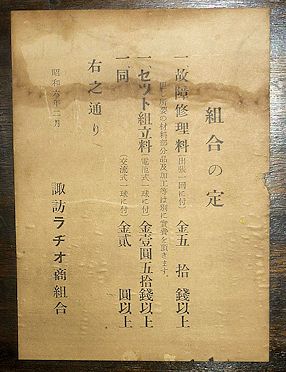 組合の定
一、故障修理料(出張一回に付) 金五拾錢以上
但し所要の材料部分品及加工等は別に實費を頂きます。
一、セット組立料(電池式一球に付) 金壹圓五拾錢以上
一、同 (交流式一球に付) 金貳圓以上
右之通り
昭和六年二月
諏訪ラヂオ商組合